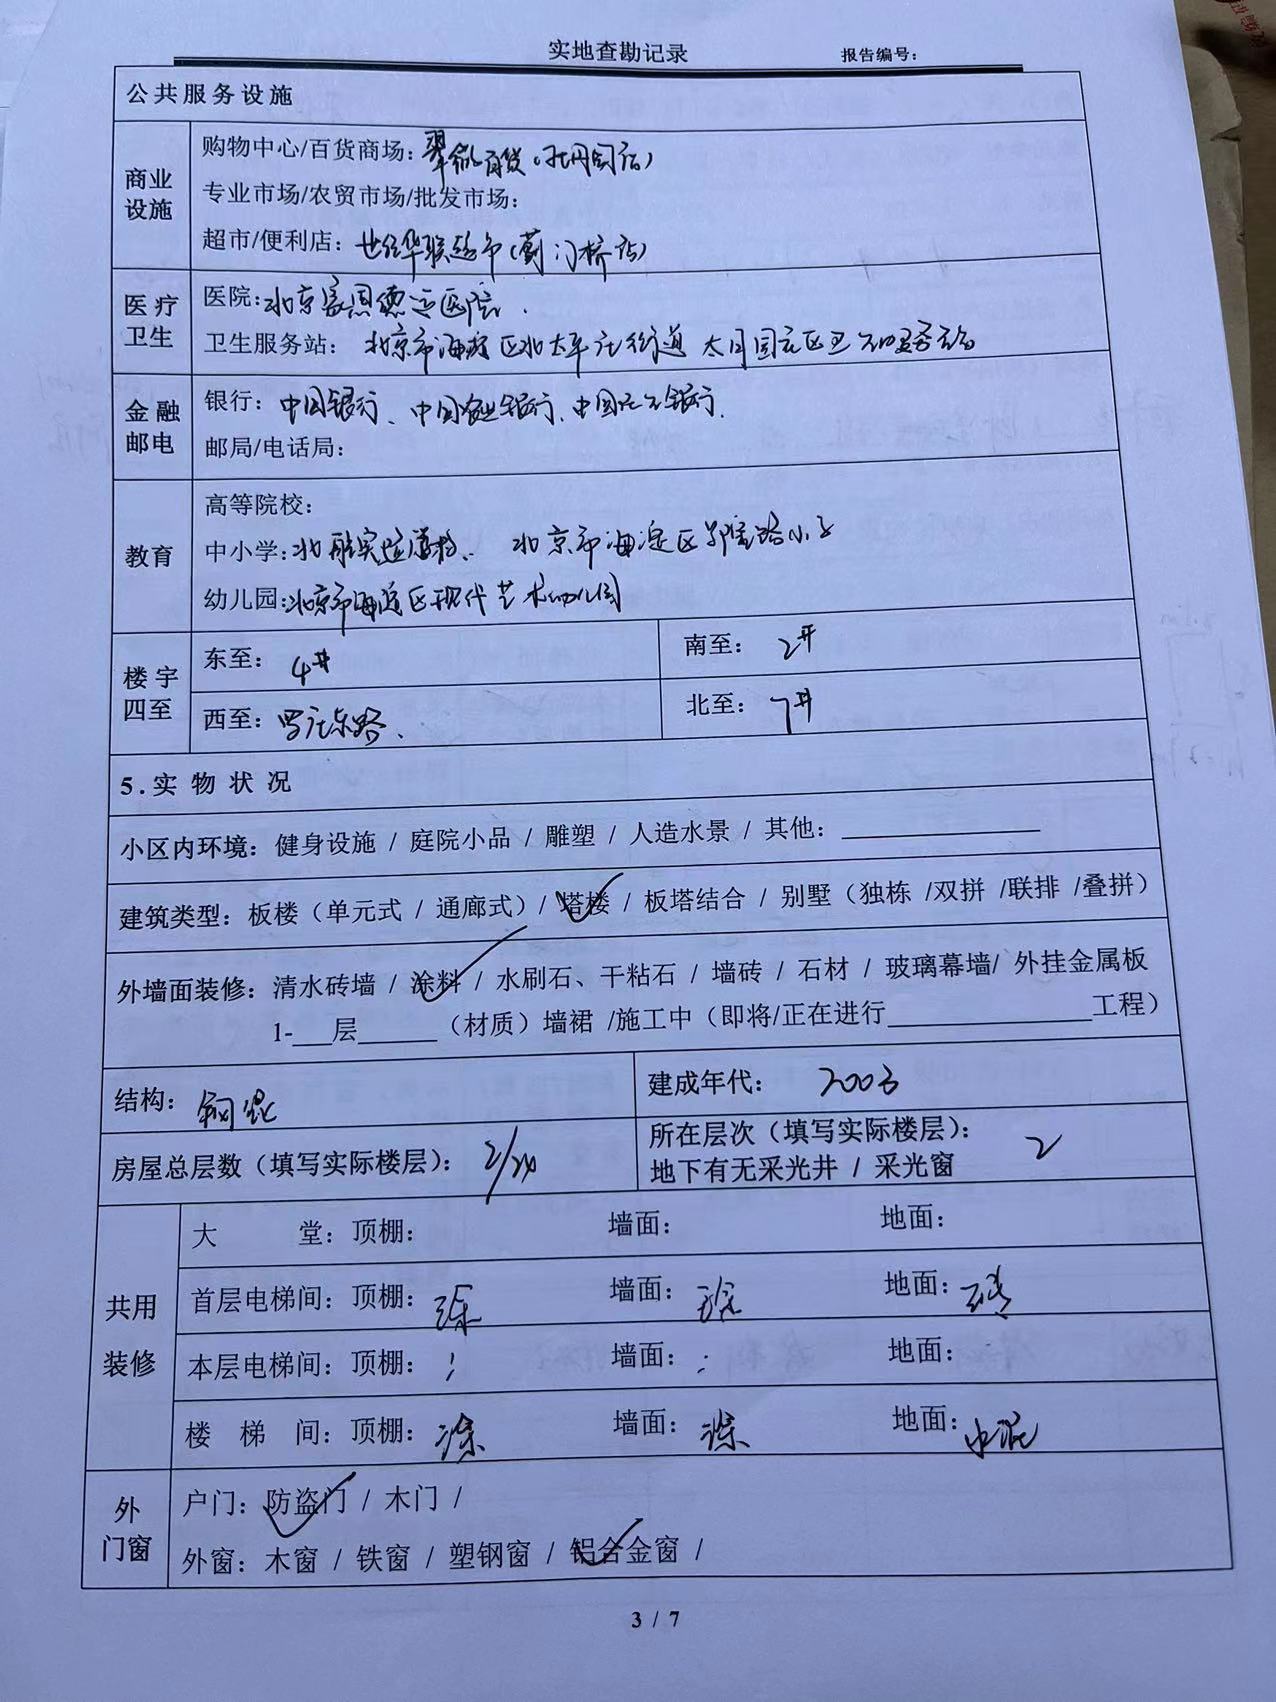 实地查勘记录 报告编号：
公共服务设施
商业设施
购物中心/百货商场：翠微百货（牡丹园店）
专业市场/农贸市场/批发市场：
超市/便利店：世纪华联超市（蓟门桥店）
医疗卫生
医院：北京家恩德运医院．
卫生服务站：北京市海淀区北太平庄街道太月园社区卫生服务站
金融邮电
银行：中国银行、中国农业银行、中国民生银行．
邮局/电话局：
教育
高等院校：
中小学：北航实验学校、北京市海淀区路小学
幼儿园：北京市海淀区现代艺术幼儿园
楼宇四至
东至：4# 南至：2#
西至：庄东路、 北至：7#
5.实物状况
小区内环境：健身设施 / 庭院小品 / 雕塑 / 人造水景 / 其他：
建筑类型：板楼（单元式 / 通廊式）/ 塔楼 / 板塔结合 / 别墅（独栋 /双拼 /联排 /叠拼）
外墙面装修：清水砖墙 / 涂料 / 水刷石、干粘石 / 墙砖 / 石材 / 玻璃幕墙/ 外挂金属板
1-___层______（材质）墙裙 /施工中（即将/正在进行________________工程）
结构：钢混 建成年代：2003
房屋总层数（填写实际楼层）：2/24 所在层次（填写实际楼层）：2
地下有无采光井 / 采光窗
共用装修
大堂：顶棚： 墙面： 地面：
首层电梯间：顶棚：涂 墙面：涂 地面：砖
本层电梯间：顶棚： 墙面： 地面：
楼梯间：顶棚：涂 墙面：涂 地面：水泥
外门窗
户门：防盗门 / 木门 /
外窗：木窗 / 铁窗 / 塑钢窗 / 铝合金窗 /
3 / 7